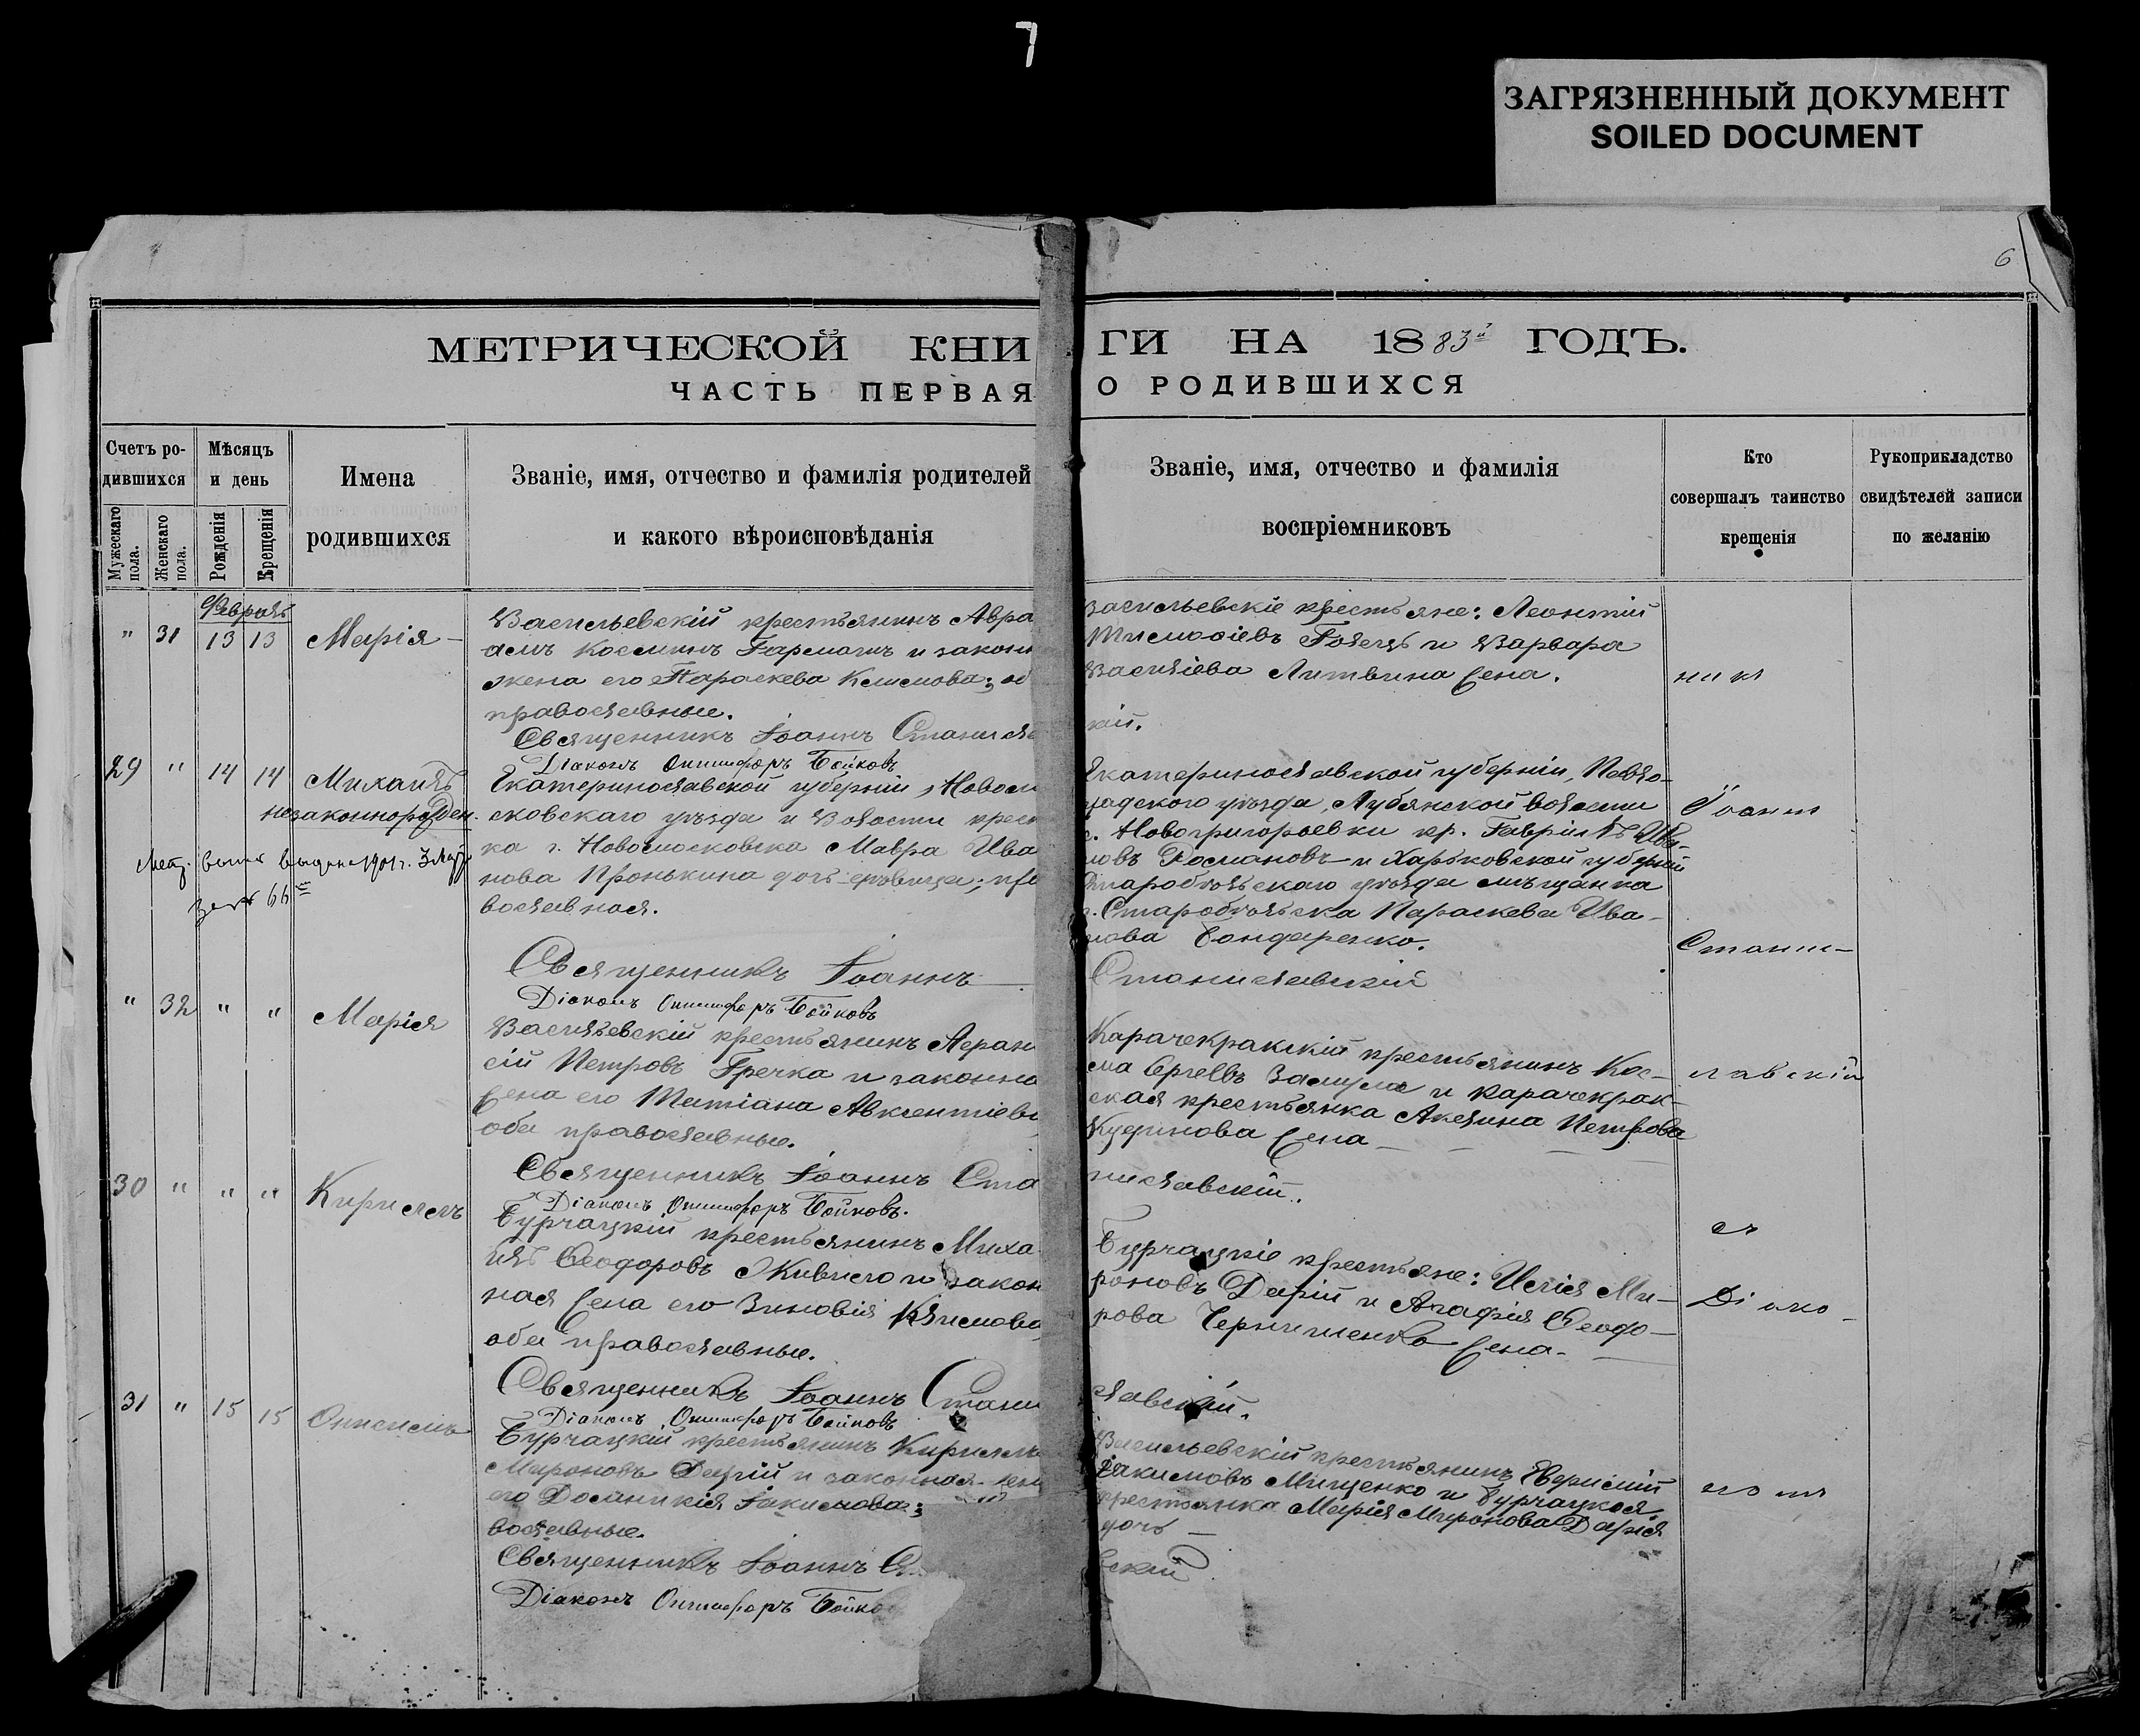 7
ЗАГРЯЗНЕННЫЙ ДОКУМЕНТ
SOILED DOCUMENT
6
МЕТРИЧЕСКОЙ КНИ
ГИ НА 1883й ГОДЪ.
ЧАСТЬ ПЕРВАЯ
О РОДИВШИХСЯ
Счетъ ро-
дившихся
Мужескаго пола.
Женскаго пола.
Мѣсяцъ
и день
Рожденія
Крещенія
Имена
родившихся
Званіе, имя, отчество и фамилія родителей
и какого вѣроисповѣданія
Званіе, имя, отчество и фамилія
воспріемниковъ
Кто
совершалъ таинство
крещенія
Рукоприкладство
свидѣтелей записи
по желанію
Февраль
" 31 13 13 Марія
Васильевскій крестьянинъ Авра
амъ Косминъ Гармашъ и законн
жена его Параскева Климова; об
православные.
Священникъ Іоаннъ Станисла
Діаконъ Онисифоръ Бойковъ
Васильевскіе крестьяне: Леонтій
Тимофіевъ и Варвара
Василіева Литвина жена.
кій.
29 " 14 14 Михаилъ
незаконнорожден.
выдана 1901 г.
66
Екатеринославской губерніи, Новом
сковскаго уѣзда и Волости крест
ка г. Новомосковска Мавра Ива
нова Пронькина дочь-дѣвица; пра
вославная.
Священникъ Іоаннъ
Діаконъ Онисифоръ Бойковъ
Екатеринославской губерніи, Павло-
градского уѣзда, Лубянской волости
с. Новогригоровки кр. Гавріилъ Ива-
новъ Романовъ и Харьковской губерніи
Старобѣльскаго уѣзда мѣщанка
г. Старобѣльска Параскева Ива-
нова Бондаренко.
Станиславскій
" 32 " " Марія
Васильевскій крестьянинъ Аѳана
сій Петровъ Гречка и законна
жена его Татіана Авксентіева
оба православные.
Священникъ Іоаннъ Ста
Діаконъ Онисифоръ Бойковъ.
Карачекракскій крестьянинъ Кос-
ма Сергѣевъ и карачекрак-
ская крестьянка Акилина Петрова
жена
ниславскій.
30 " " " Кириллъ
Бурчацкій крестьянинъ Миха
илъ Ѳеодоровъ и закон
ная жена его Зиновія Климова
оба православные.
Священникъ Іоаннъ Стани
Діаконъ Онисифоръ Бойковъ
Бурчацкіе крестьяне: Илія Ми-
роновъ Дацій и Агафія Ѳеодо-
рова жена.
славскій.
31 " 15 15 Онисимъ
Бурчацкій крестьянинъ Кириллъ
Мироновъ Дацій и законная жена
его Домникія Іакимова;
вославные.
Священникъ Іоаннъ С
Діаконъ Онисифоръ Бойко
Васильевскій крестьянинъ
Іакимовъ Мищенко и Бурчацкая
крестьянка Марія Миронова
дочь
вскій
никъ
Іоаннъ
Стани-
славскій
съ
Діако-
номъ